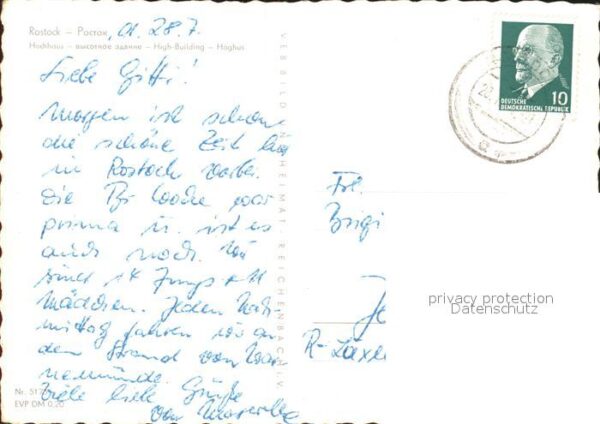 Rostock – Росток, d. 28.7.
Hochhaus – высотное здание – High-Building – Höghus
Liebe Gitti!
Morgen ist schon
die schöne Zeit hier
in Rostock vorbei.
Die Woche war
prima u. ist es
auch noch. Wir
sind 14 Jungs + 11
Mädchen. Jeden Nach-
mittag fahren wir an
den Strand von War-
nemünde.
Viele liebe Grüße
von
Nr. 517
EVP DM 0,20
VEB BILD HEIMAT REICHENBACH I. V.
DEUTSCHE
DEMOKRATISCHE REPUBLIK
10
Frl.
Brigi
privacy protection
Datenschutz